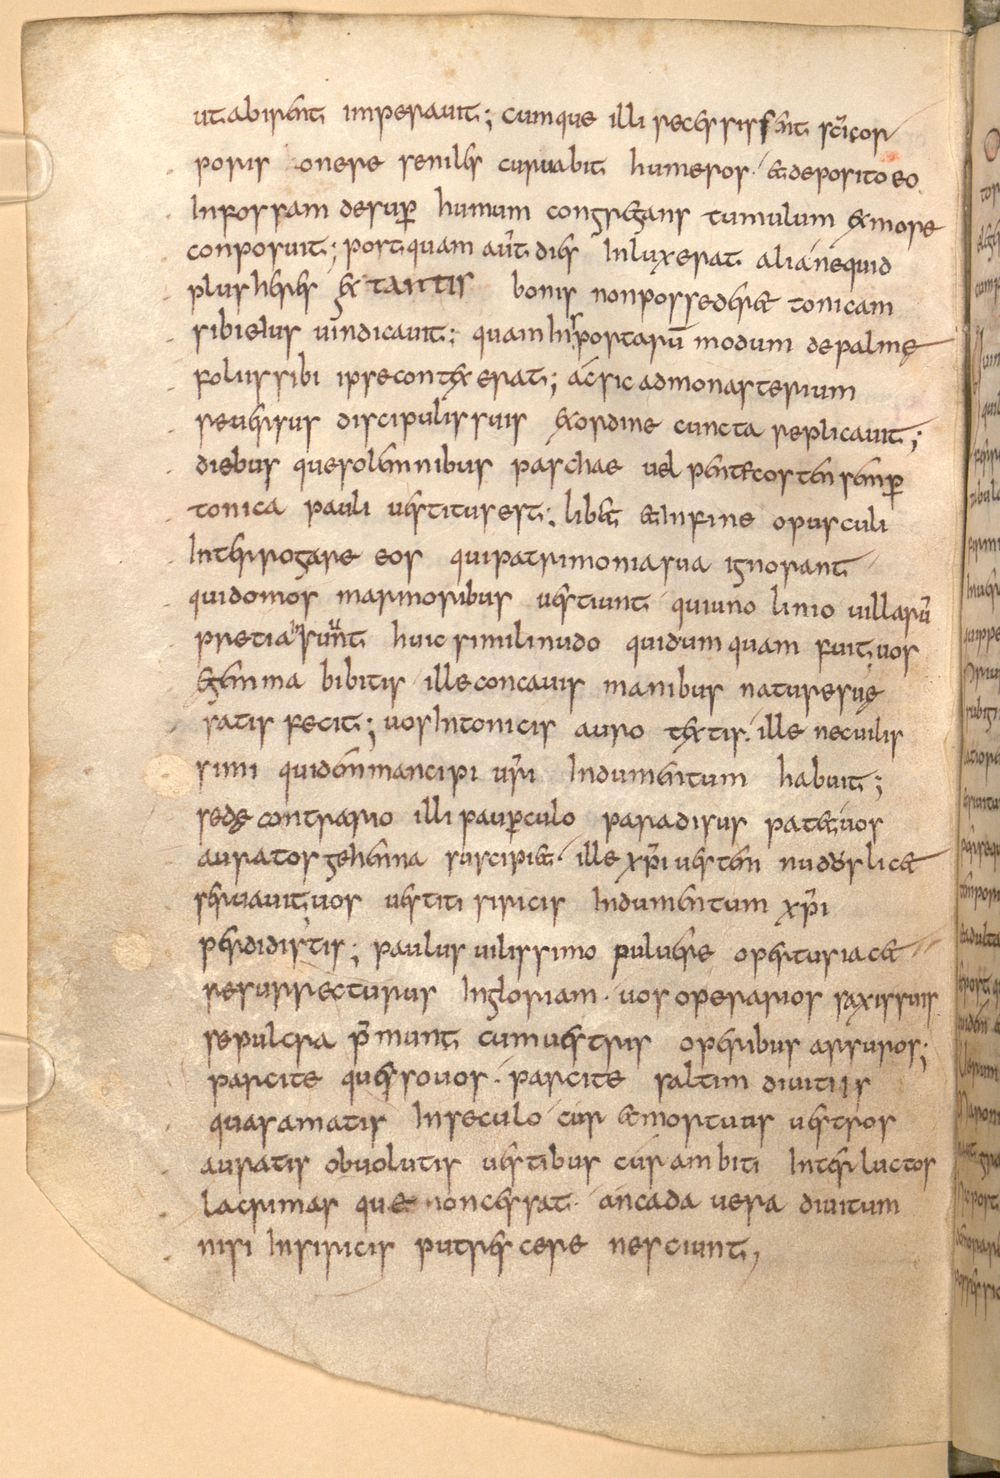 ut abirent imperauit; cumque illi recessissent sci cor
poris onere seniles curuabit humeros· et deposito eo
In fossam desup̄ humum congregans tumulum ex more
conposuit; postquam aut̄ dies Inluxerat alia nequid
plus heres ex tantis bonis non possederet tonicam
sibi eius uindicauit; quam In sportarū modum de palmę
folus sibi ipse contexerat; ac sic ad monasterium
reuersus discipulis suis ex ordine cuncta replicauit;
diebus que solemnibus paschae uel pentecosten semp̄
tonica pauli uestitus est; libet et In fine opusculi
Interrogare eos qui patrimonia sua ignorant
qui domos marmoribus uestiunt qui uno linio uillarū
pretia sunt huic simili nudo quid umquam fuit, uos
gemma bibitis ille concauis manibus nature suę
satis fecit; uos In tonicis auro textis· ille nec uilis
simi quidem mancipi ur̄i Indumentum habuit;
sed e contrario illi paup̄culo paradisus patet, uos
auratos gehenna suscipiet· ille xp̄i uestem nudus licet
seruauit, uos uestiti siricis Indumentum xp̄i
perdidistis; paulus uilissimo puluere opertus iacet
resurrecturus In gloriam· uos operarios saxis suis
sepulcra p̄munt cum uestris operibus arsuros;
parcite queso uos· parcite saltim diuitiis
quas amatis In seculo cur et mortuus uestros
auratis obuolutis uestibus cur ambiti Inter luctos
lacrimas que non cessat· an cada uera diuitum
nisi In siricis putrescere nesciunt,